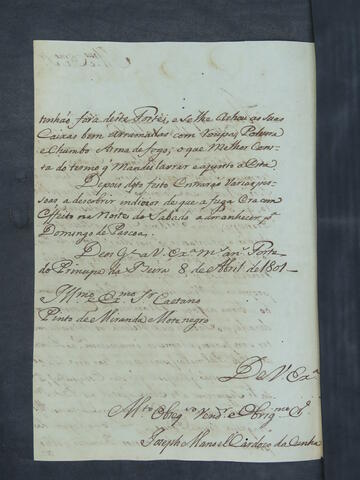 tinhaõ fóra deste Forte, e se lhe achou as suas
Caixas bem arrumadas com roupa, Polvora
e Chumbo Arma de fogo; o que melhor Cons-
ta do termo q̃ Mandei lavrar e ajunto a Esta
Depois deto feito Entrarão varias pes-
soas a descobrir indicios de que a fuga Era com
effeito na Noite de Sabado a amanhecer pª
Domingo de Pascoa.
Deos Gᵉ a V. Exª mˢ anˢ Forte
do Principe da Beira 8 de Abril de 1801-
Illmo e Exmo Sr Caetano
Pinto de Miranda Montenegro
De V. Exª
Mto Obrigdo Vendr e Obrigmo Cr
Joseph Manoel Cardozo da Cunha